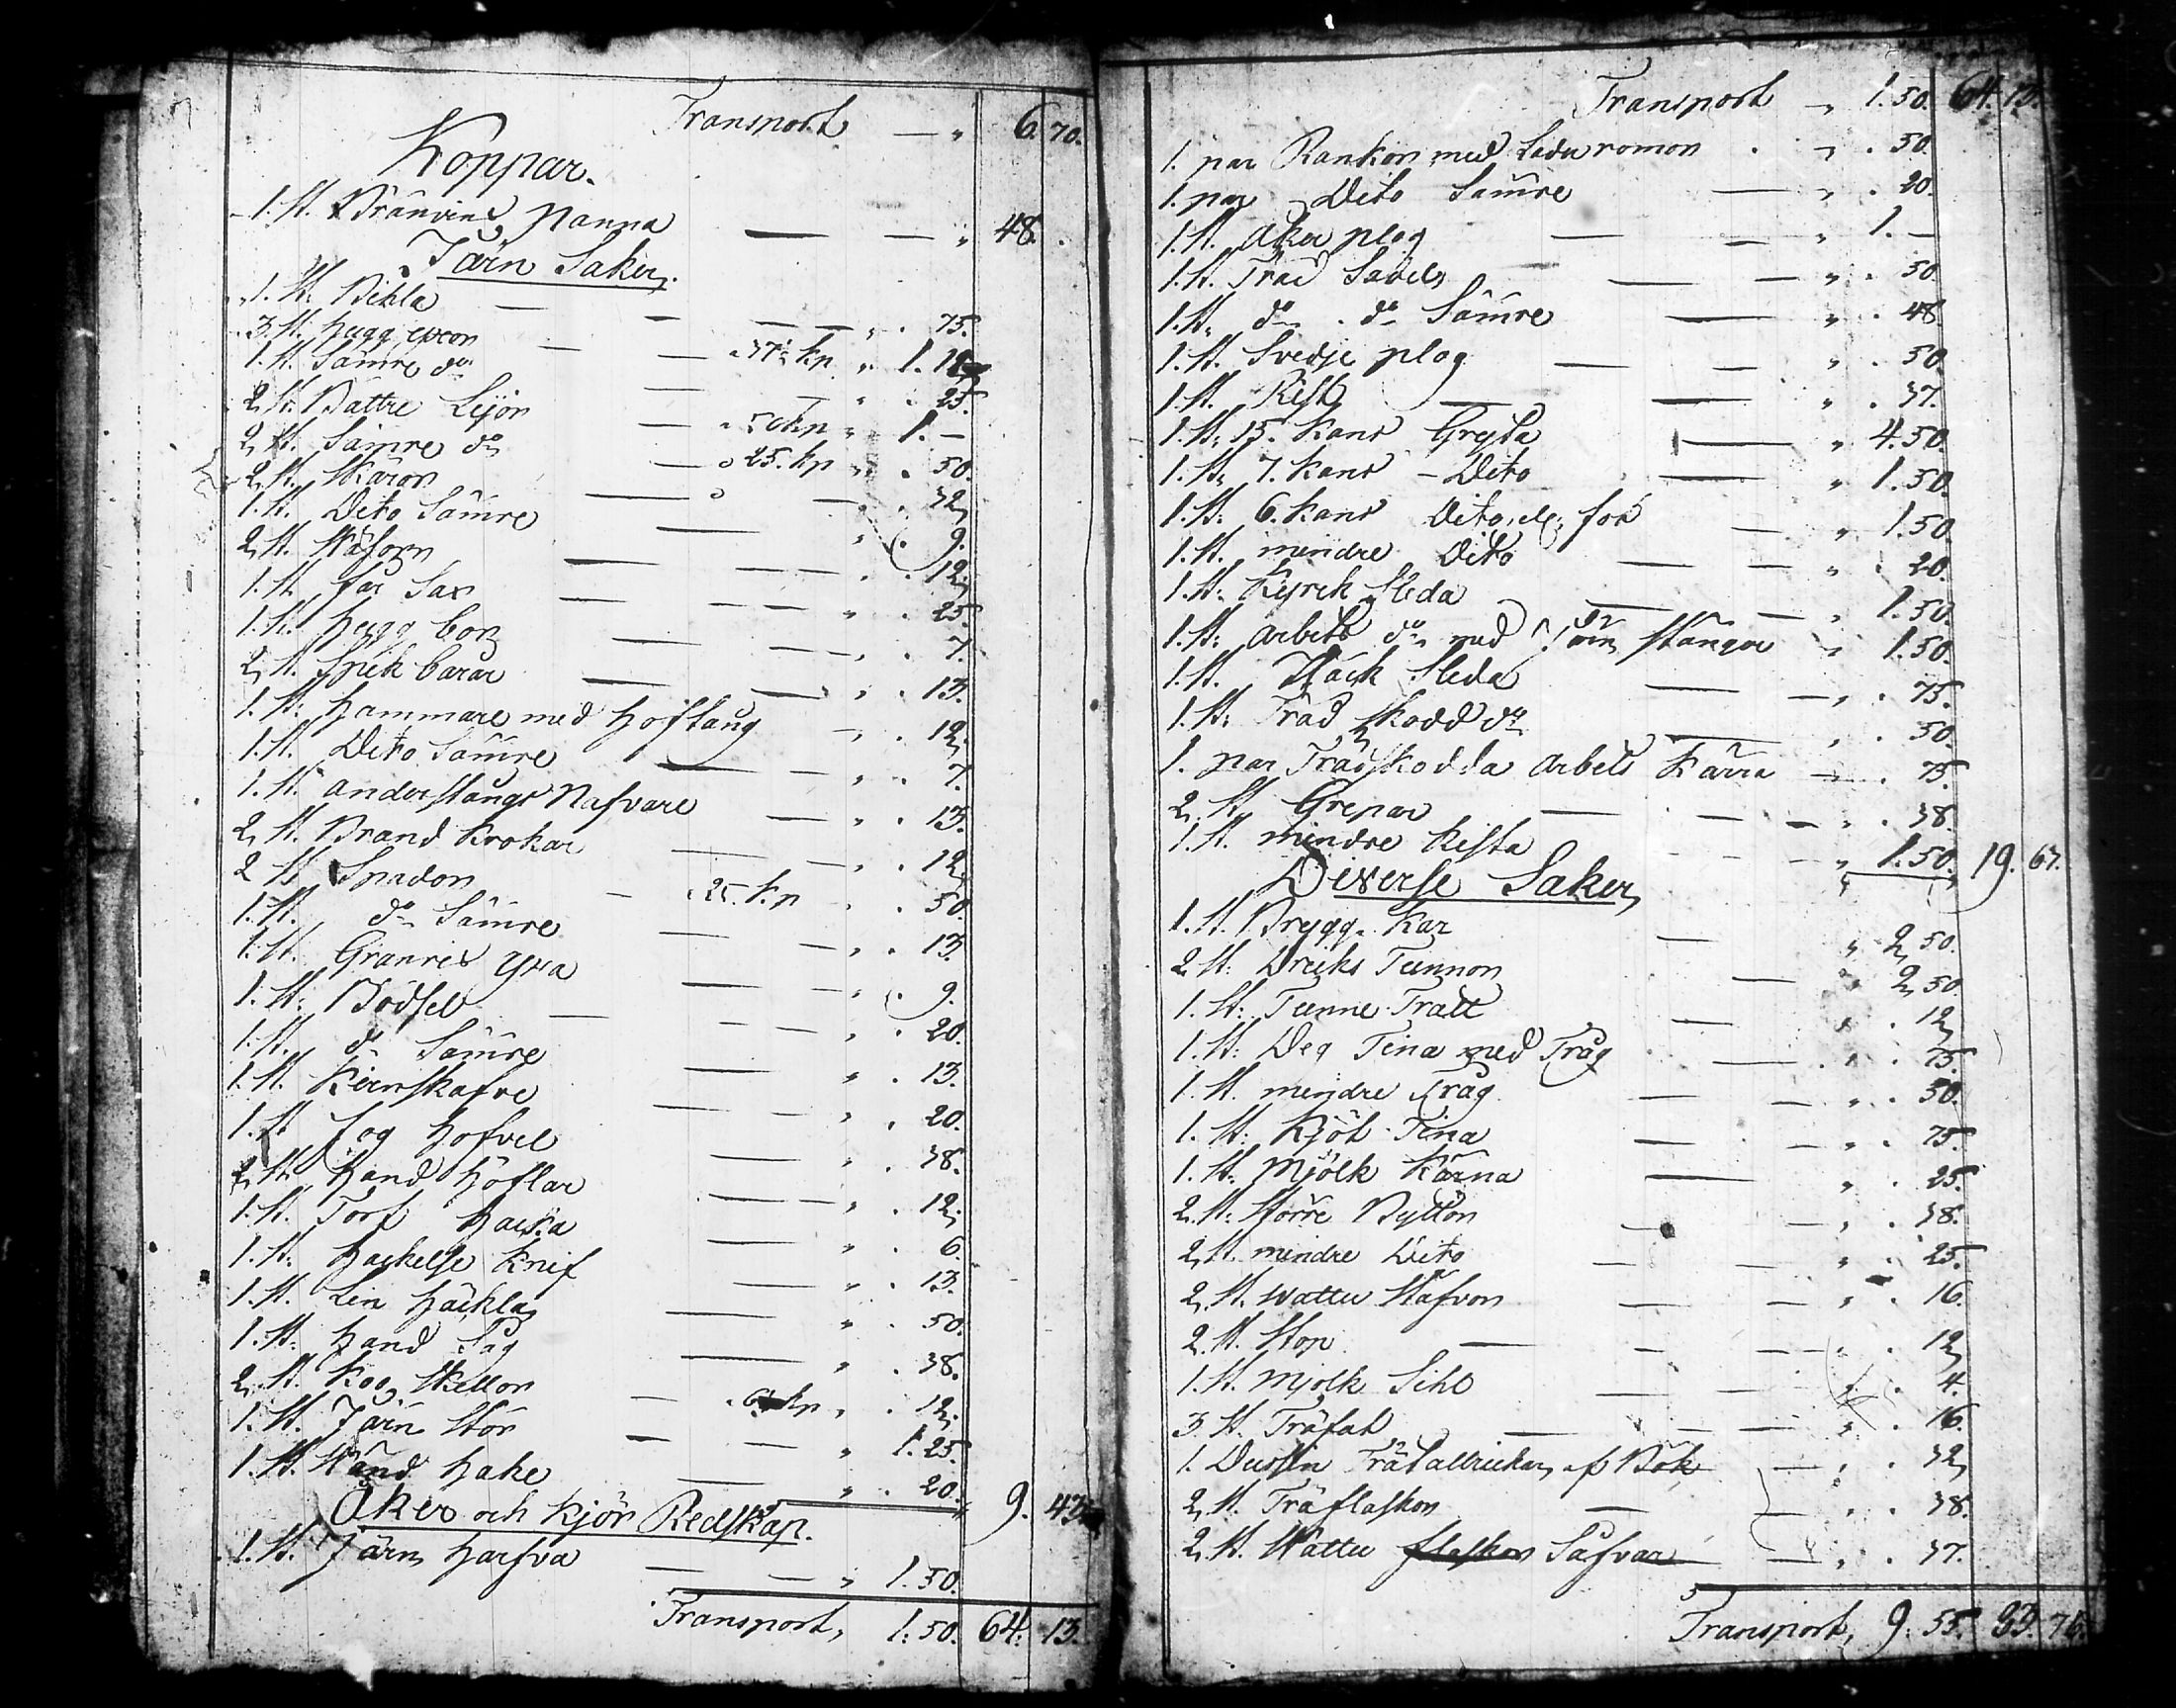 Transport — " 6. 70.
Koppar.
1. St. Bränvins panna — — " 48. .
Järn Saker.
1. St. Bihla — — — " . 75.
3. St. hugg yxor — — " 37½ kp " 1. 12
1. St. Sämre do — — " . 25.
2 St. Bättre Lijor — " 50 kp " 1. —
2 St. Sämre do — " 25. kp " . 50.
2 St. Skäror — — " . 32
1. St. Dito Sämre — " . 9.
2 St. — — " . 12
1. St. får Sax — — " . 25.
1. St. hugg bor — — " . 7.
2 St. Spik borar — — " . 13.
1. St. hammare med hoftång — " . 12
1. St. Dito Sämre — " . 7.
1. St. anderstångs Nafvare — " . 13.
2 St. Brand Krokar — — " . 12
2 St Spadon — " 25. k.p . . 50
1. St. do Sämre — — " . 13.
1. St. Granris yxa — — " . 9.
1. St. Bödsel — — — " . 20.
1. St. do Sämre — " . 13.
1. St. Kiernskafve — — " . 20.
1. St Log hofvel — " . 38.
2 St. hand höflar — — " . 12.
1. St. Torf hacka — " . 6.
1. St. hackelse Knif — " . 13.
1. St. Lin häckla — " . 50.
1. St. hand Såg — " . 38.
2 St. Koo Skellor — " 6 kp " . 12.
1. St. Järn Stör — — " 1. 25.
1. St. Wänd hake — " . 20. " 9. 43
Åker och Kjör Redskap.
1. St. Järn harfva — — " 1. 50.
Transport, 1: 50. 64: 13.
Transport " 1. 50. 64. 13.
1. par Rankor med Ladu romon . " . 50.
1. par Dito Sämre — " . 20.
1. St. Åker plog — — " 1. —
1. St. Träd — — " . 50
1. St. do . do Sämre — " . 48
1. St. Svedje plog — — " . 50.
1. St. Rist — — " . 37.
1. St. 15. Kans Gryta — " 4. 50.
1. St. 7. Kans – Dito — " 1. 50.
1. St. 6. Kans Dito — " 1. 50
1. St. mindre Dito — — " . 20.
1. St. Kyrck Sleda — — " 1. 50.
1. St. arbets do med Järn stänger " 1. 50.
1. St. Häck Sleda — — " . 75.
1. St. Träd Skodd do — " . 50.
1. par Trädskodda arbets Kärra — . 75
2. St. Grepar — — — " . 38.
1. St. mindre Kista — — " 1. 50. 19. 67.
Diverse Saker
1. St. Brygg. Kar — " 2 50.
2 St. Dricks Tunnor — " 2 50.
1. St. Tunne Tratt — " . 12
1. St. Deg Tina med Tråg — . . 75.
1. St. mindre Tråg — — " . 50.
1. St. Kjöt Tina — — " . 75.
1. St. Mjölk Kärna — " . 25.
2. St. Större Byttor — — " . 38.
2 St. mindre Dito — — " . 25.
2. St. watten Stäfvor — — " . 16.
2. St. Stop — — — . . 12
1. St. Mjölk Sihl — — " . 4.
3 St. Träfat — — " . 16.
1. Dussin Trätallrickar af Bök — " . 32
2 St. Träflaskor — — " . 38.
2 St. Watten flaskor Såfvar — " . 37.
Transport, 9: 55. 83. 76.